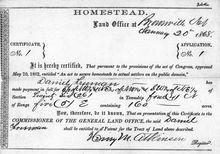 HOMESTEAD.
Land Office at Brownville Neb
January 20th 1868.
CERTIFICATE, No. 1
APPLICATION, No. 1
It is hereby certified, That pursuant to the provisions of the act of Congress, approved
May 20, 1862, entitled "An act to secure homesteads to actual settlers on the public domain,"
Daniel Freeman has
made payment in full for
Section Twenty six 26 in Township four 4 N
of Range five 5 E containing 160 acres
Now, therefore, be it known, That on presentation of this Certificate to the
COMMISSIONER OF THE GENERAL LAND OFFICE, the said Daniel
Freeman shall be entitled to a Patent for the Tract of Land above described.
Henry M. Atkinson